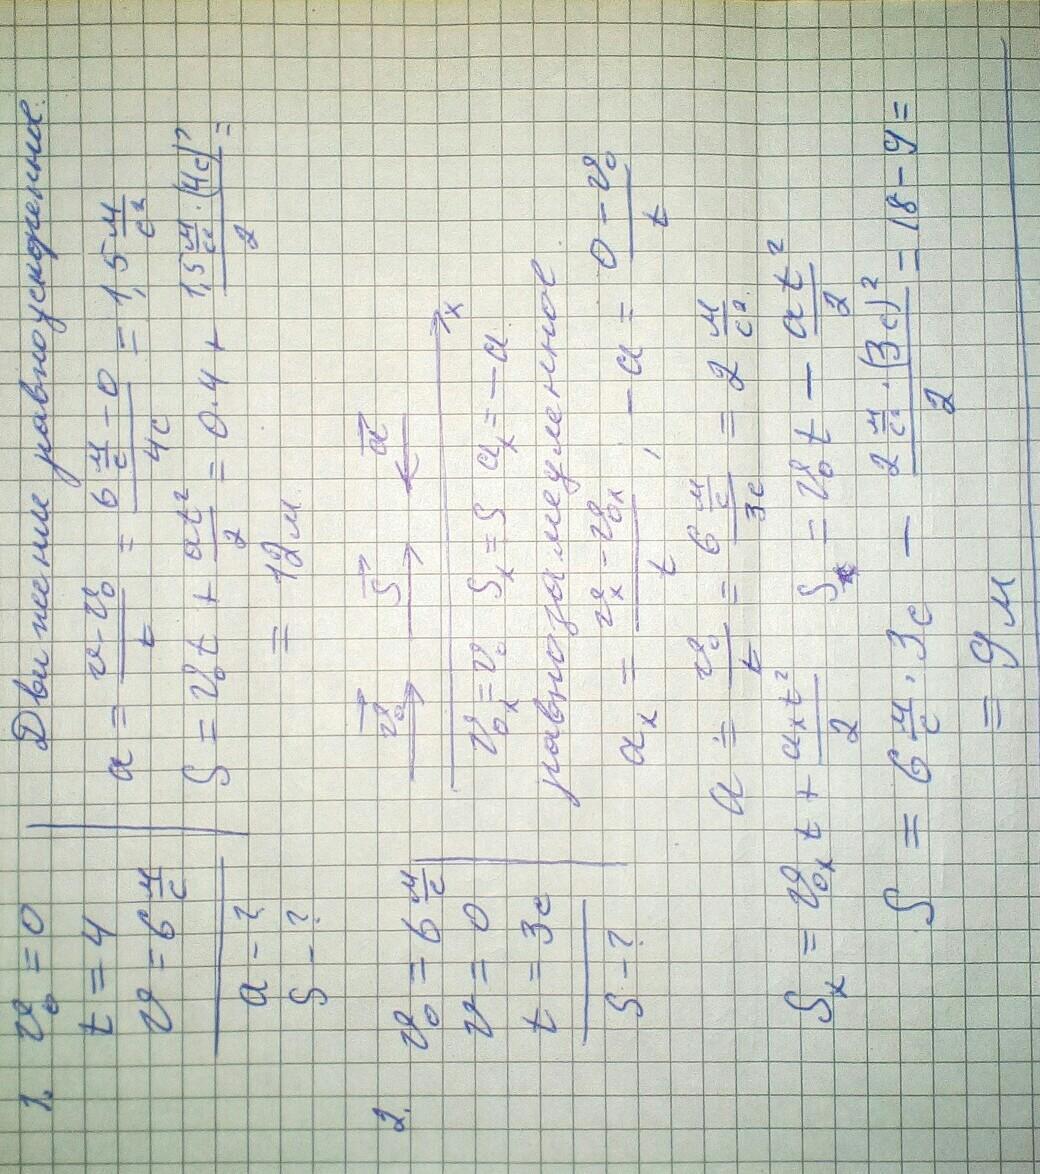 1. v₀ = 0
t = 4
v = 6 м/с
a - ?
S - ?
Движение равноускоренное.
a = (v - v₀)/t = (6 м/с - 0)/4с = 1,5 м/с²
S = v₀t + at²/2 = 0·4 + (1,5 м/с² · (4с)²)/2 =
= 12 м
2. v₀ = 6 м/с
v = 0
t = 3с
S - ?
v⃗₀ S⃗ a⃗
x
v₀ₓ = v₀ Sₓ = S aₓ = -a
равнозамедленное
aₓ = (vₓ - v₀ₓ)/t , -a = (0 - v₀)/t
a = v₀/t = (6 м/с)/3с = 2 м/с²
Sₓ = v₀ₓt + aₓt²/2 S = v₀t - at²/2
S = 6 м/с · 3с - (2 м/с² · (3с)²)/2 = 18 - 9 =
= 9 м